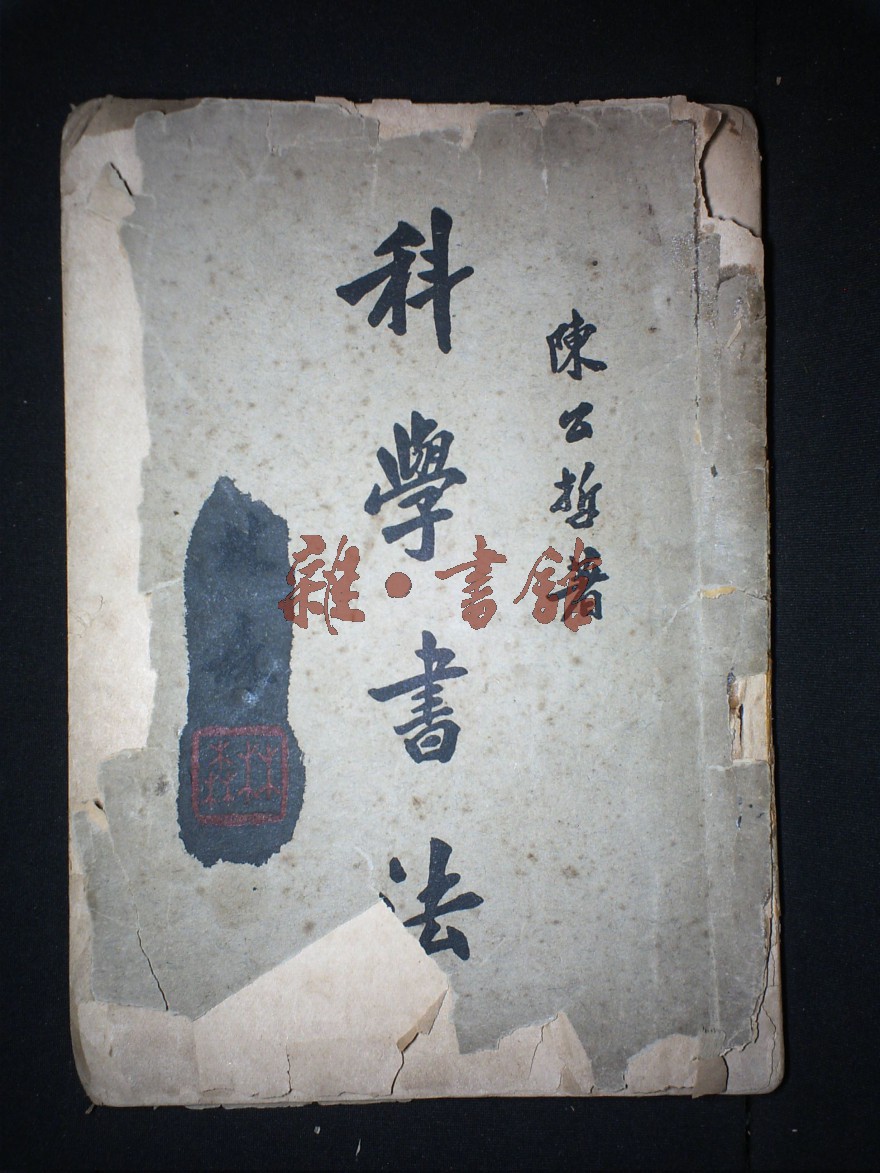 陳公哲著
科學書法
雜•書館